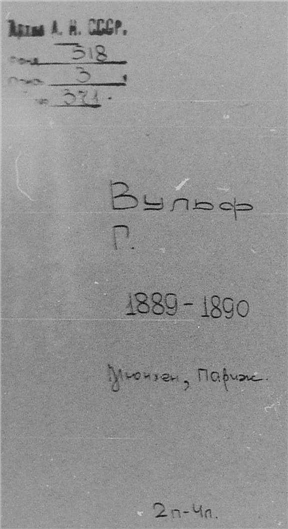 Архив А. Н. СССР.
фонд 518
опись 3
№ 371.
Вульф
Г.
1889-1890
Мюнхен, Париж.
2п-4л.